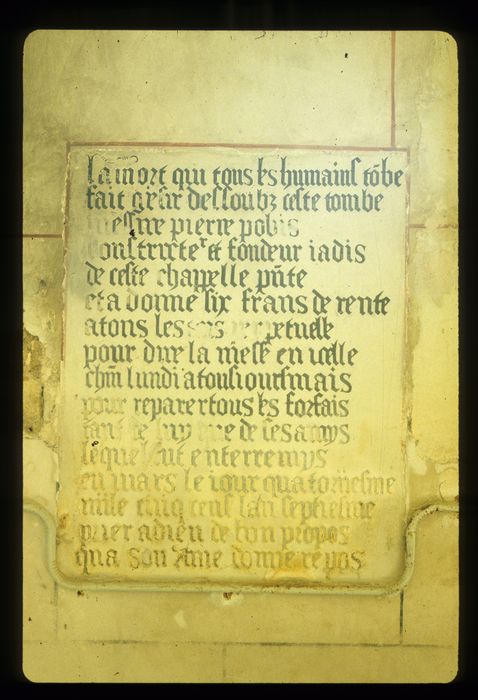 la mort qui tous les humains tōbe
fait gesir dessoubz ceste tombe
messire pierre pobis
constructeʳ et fōndeur iadis
de ceste chappelle pn̄te
et a donne six frans de rente
a tons les perpetuelle
pour dire la messe en icelle
chm̄ lundi a tousiours mais
pour reparer tous les forfais
de ses
lequel fut enterre
en mars le iour quatorziesme
mile cinq cens lan septiesme
prier a dieu de bon propos
qua son ame donne repos